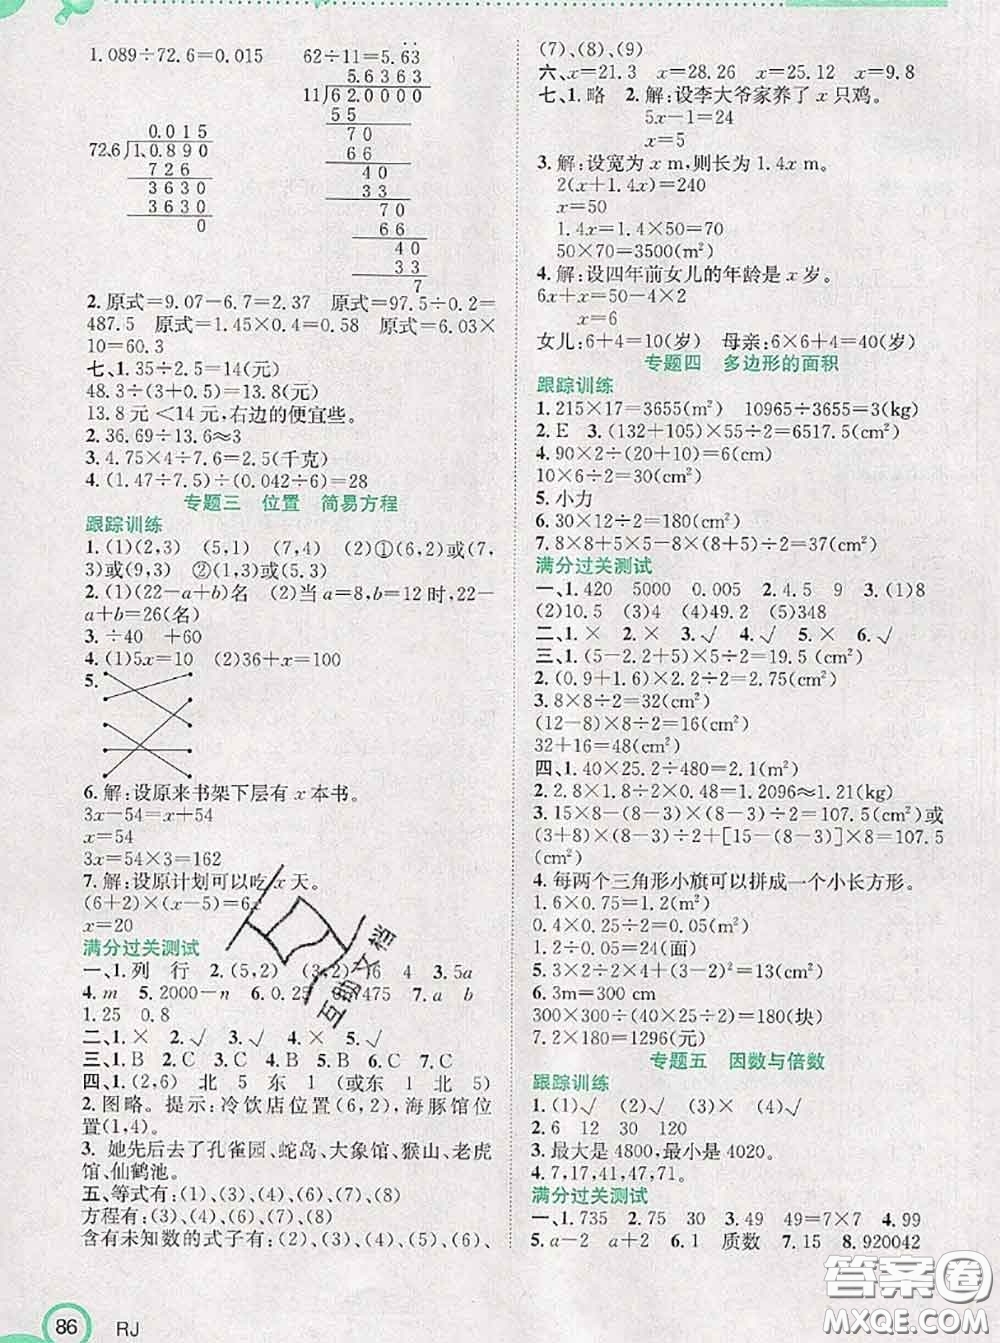 1.089÷72.6=0.015　62÷11=5.6̇3̇
5.6363
11√620000
55
70
66
40
33
70
66
40
33
7
0.015
72.6√1.0890
726
3630
3630
0
2.原式=9.07-6.7=2.37　原式=97.5÷0.2=
487.5　原式=1.45×0.4=0.58　原式=6.03×
10=60.3
七、1.35÷2.5=14(元)
48.3÷(3+0.5)=13.8(元)
13.8元<14元,右边的便宜些。
2.36.69÷13.6≈3
3.4.75×4÷7.6=2.5(千克)
4.(1.47÷7.5)÷(0.042÷6)=28
专题三　位置　简易方程
跟踪训练
1.(1)(2,3)　(5,1)　(7,4)　(2)①(6,2)或(7,
3)或(9,3)　②(1,2)或(5,3)
2.(1)(22-a+b)名　(2)当a=8,b=12时,22-
a+b=26(名)
3.÷40　+60
4.(1)5x=10　(2)36+x=100
5.
6.解:设原来书架下层有x本书。
3x-54=x+54
x=54
3x=54×3=162
7.解:设原计划可以吃x天。
(6+2)×(x-5)=6x
x=20
满分过关测试
一、1.列　行　2.(5,2)　(3,2)　16　4　3.5a
4.m　5.2000-n　6.0.25　0.7475　7.a　b
1.25　0.8
二、1.×　2.√　3.√　4.×　5.√
三、1.B　2.C　3.C　4.B　5.C
四、1.(2,6)　北　5　东　1　(或东　1　北　5)
2.图略。提示:冷饮店位置(6,2),海豚馆位
置(1,4)。
3.她先后去了孔雀园、蛇岛、大象馆、猴山、老虎
馆、仙鹤池。
五、等式有:(1)、(3)、(4)、(6)、(7)、(8)
方程有:(3)、(4)、(6)、(7)、(8)
含有未知数的式子有:(2)、(3)、(4)、(5)、(6)、
86　RJ
(7)、(8)、(9)
六、x=21.3　x=28.26　x=25.12　x=9.8
七、1.略　2.解:设李大爷家养了x只鸡。
5x-1=24
x=5
3.解:设宽为x m,则长为1.4x m。
2(x+1.4x)=240
x=50
1.4x=1.4×50=70
50×70=3500(m²)
4.解:设四年前女儿的年龄是x岁。
6x+x=50-4×2
x=6
女儿:6+4=10(岁)　母亲:6×6+4=40(岁)
专题四　多边形的面积
跟踪训练
1.215×17=3655(m²)　10965÷3655=3(kg)
2.E　3.(132+105)×55÷2=6517.5(cm²)
4.10×20÷(20+10)=
10×30÷2=150(cm²)
5.小力
6.30×12÷2=180(cm²)
7.8×8+5×5-8×(8+5)÷2=37(cm²)
满分过关测试
一、1.420　5000　0.005　2.4.5　9　3.(1)8
(2)10.5　(3)4　(4)49.2　(5)348
二、1.×　2.×　3.√　4.√　5.×　6.√
三、1.(5-2.2+5)×5÷2=19.5(cm²)
2.(0.9+1.6)×2.2÷2=2.75(cm²)
3.8×8÷2=32(cm²)
(12-8)×8÷2=16(cm²)
32+16=48(cm²)
四、1.40×25.2÷480=2.1(m²)
2.2.8×1.8÷2×0.48=1.2096≈1.21(m²)
3.15×8-(8-3)×(8-3)÷2=107.5(cm²)或
(3+8)×(8-3)÷2+[15-(8-3)]×8=107.5
(cm²)
4.每两个三角形小旗可以拼成一个小长方形。
1.6×0.75=1.2(m²)
0.4×0.25÷2=0.05(m²)
1.2÷0.05=24(面)
5.3×0.75÷0.5=4.5(m)
6.3m=300 cm
300×300÷(40×25÷2)=180(块)
7.7.2×180=1296(元)
专题五　因数与倍数
跟踪训练
1.(1)√　(2)√　(3)×　(4)√
2.6　12　30　120
3.最大是4800,最小是4020。
4.7,17,41,47,71。
满分过关测试
一、1.735　2.75　30　3.49　49=7×7　4.99
5.a-2　a+2　6.1　质数　7.15　8.920042
互助文档
答案圈
MXQE.COM